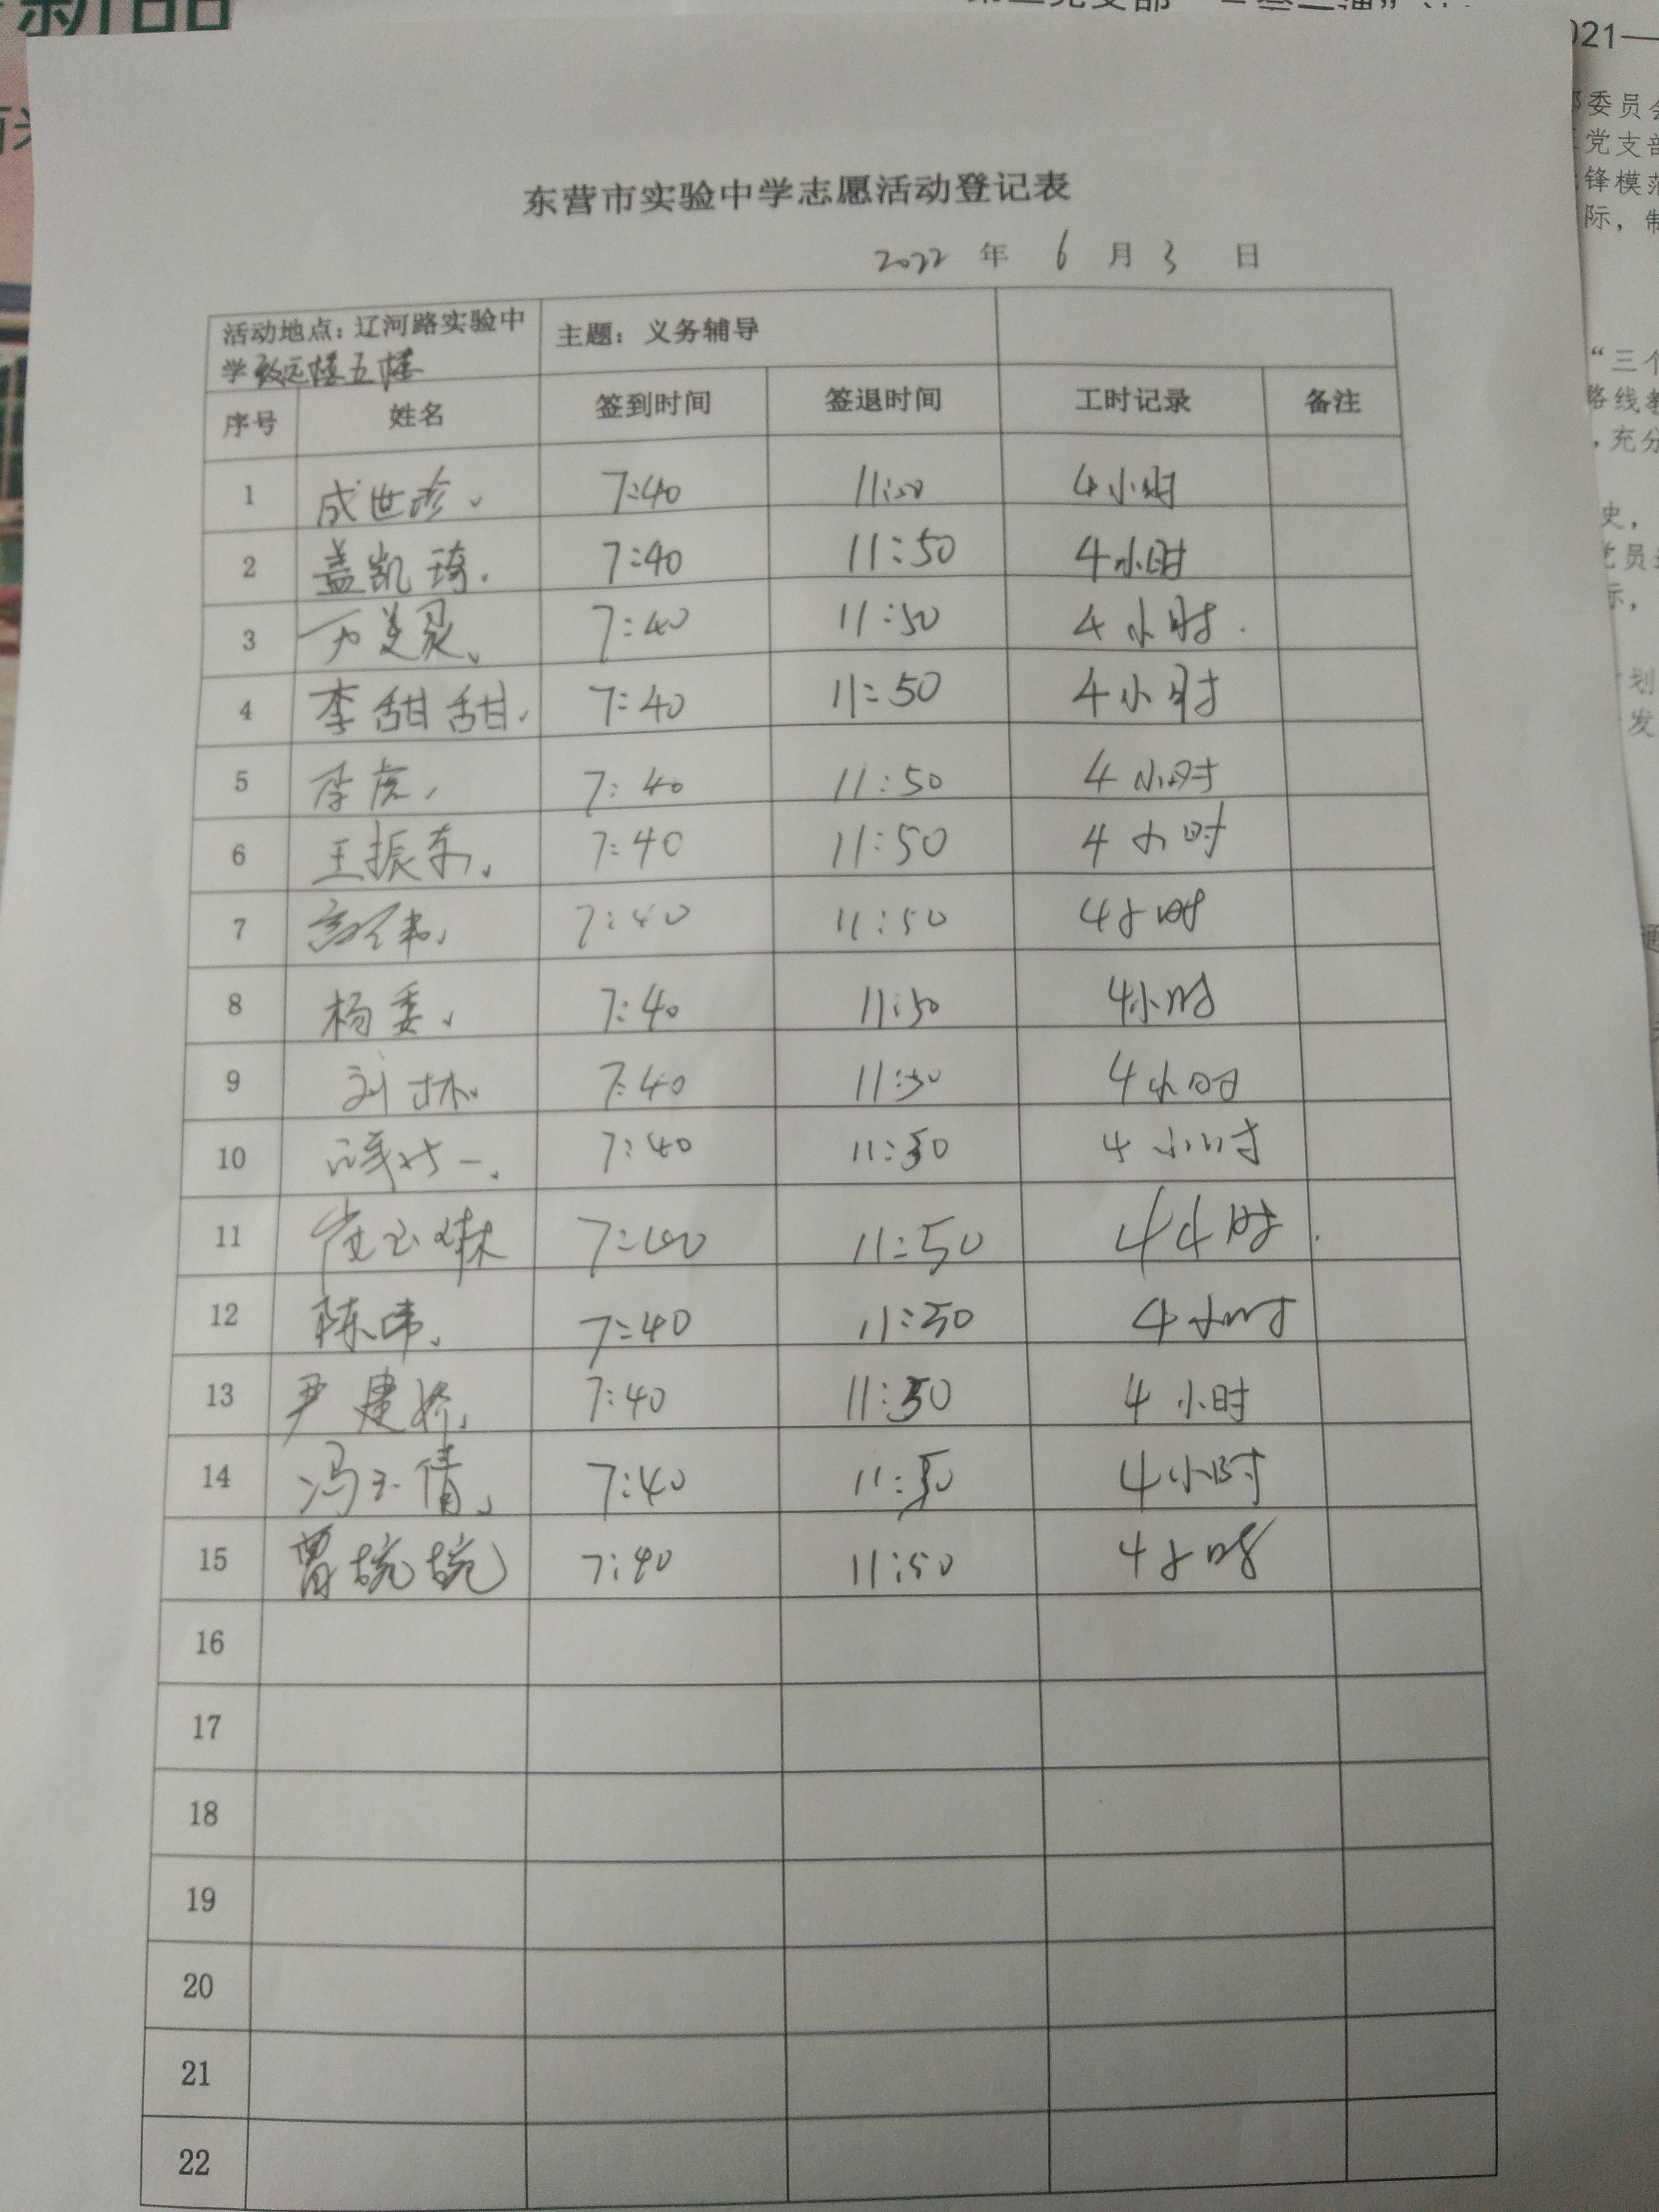 新品
021—
委员会
党支部
锋模范
际，制
“三个
路线教
，充分
史，
党员
标，
划
发
东营市实验中学志愿活动登记表
2022 年 6 月 3 日
活动地点：辽河路实验中 主题：义务辅导
学致远楼五楼
序号 姓名 签到时间 签退时间 工时记录 备注
1 成世珍 7:40 11:50 4小时
2 盖凯琦 7:40 11:50 4小时
3 7:40 11:50 4小时
4 李甜甜 7:40 11:50 4小时
5 李虎 7:40 11:50 4小时
6 王振东 7:40 11:50 4小时
7 7:40 11:50 4小时
8 杨委 7:40 11:50 4小时
9 刘林 7:40 11:50 4小时
10 7:40 11:50 4小时
11 崔玉琳 7:40 11:50 4小时
12 陈伟 7:40 11:50 4小时
13 尹建娇 7:40 11:50 4小时
14 冯玉倩 7:40 11:50 4小时
15 曹婉婉 7:40 11:50 4小时
16
17
18
19
20
21
22